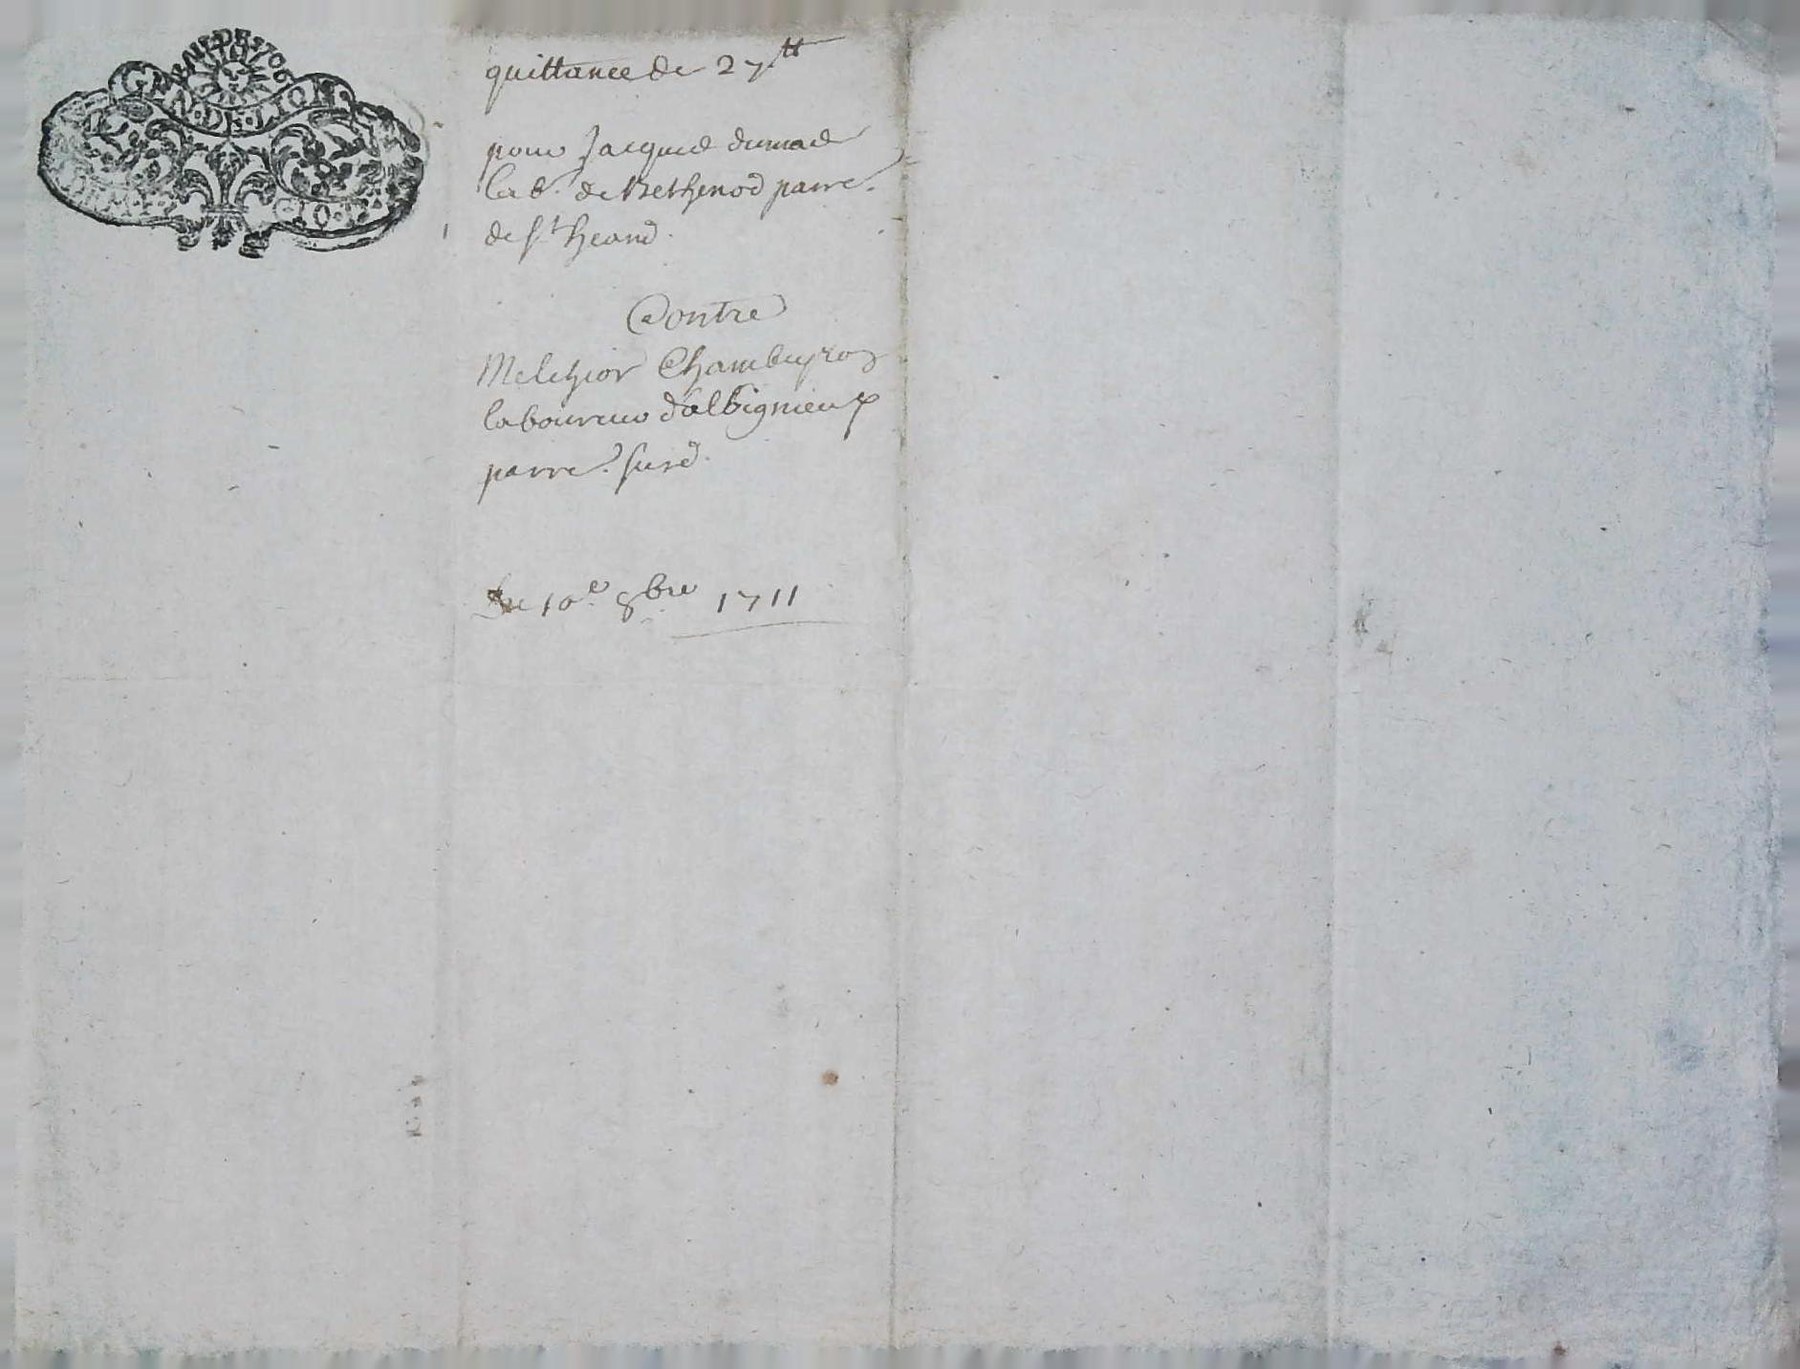 BAIL DE 1706
GEN. DE LION
quittance de 27tt
pour Jacques dumas
lab.r de Bethenod parre.
de st heand.
Contre
Melchior Chambeyron
laboureur d'albignieux
parre. susd.
Du 10e 8bre 1711